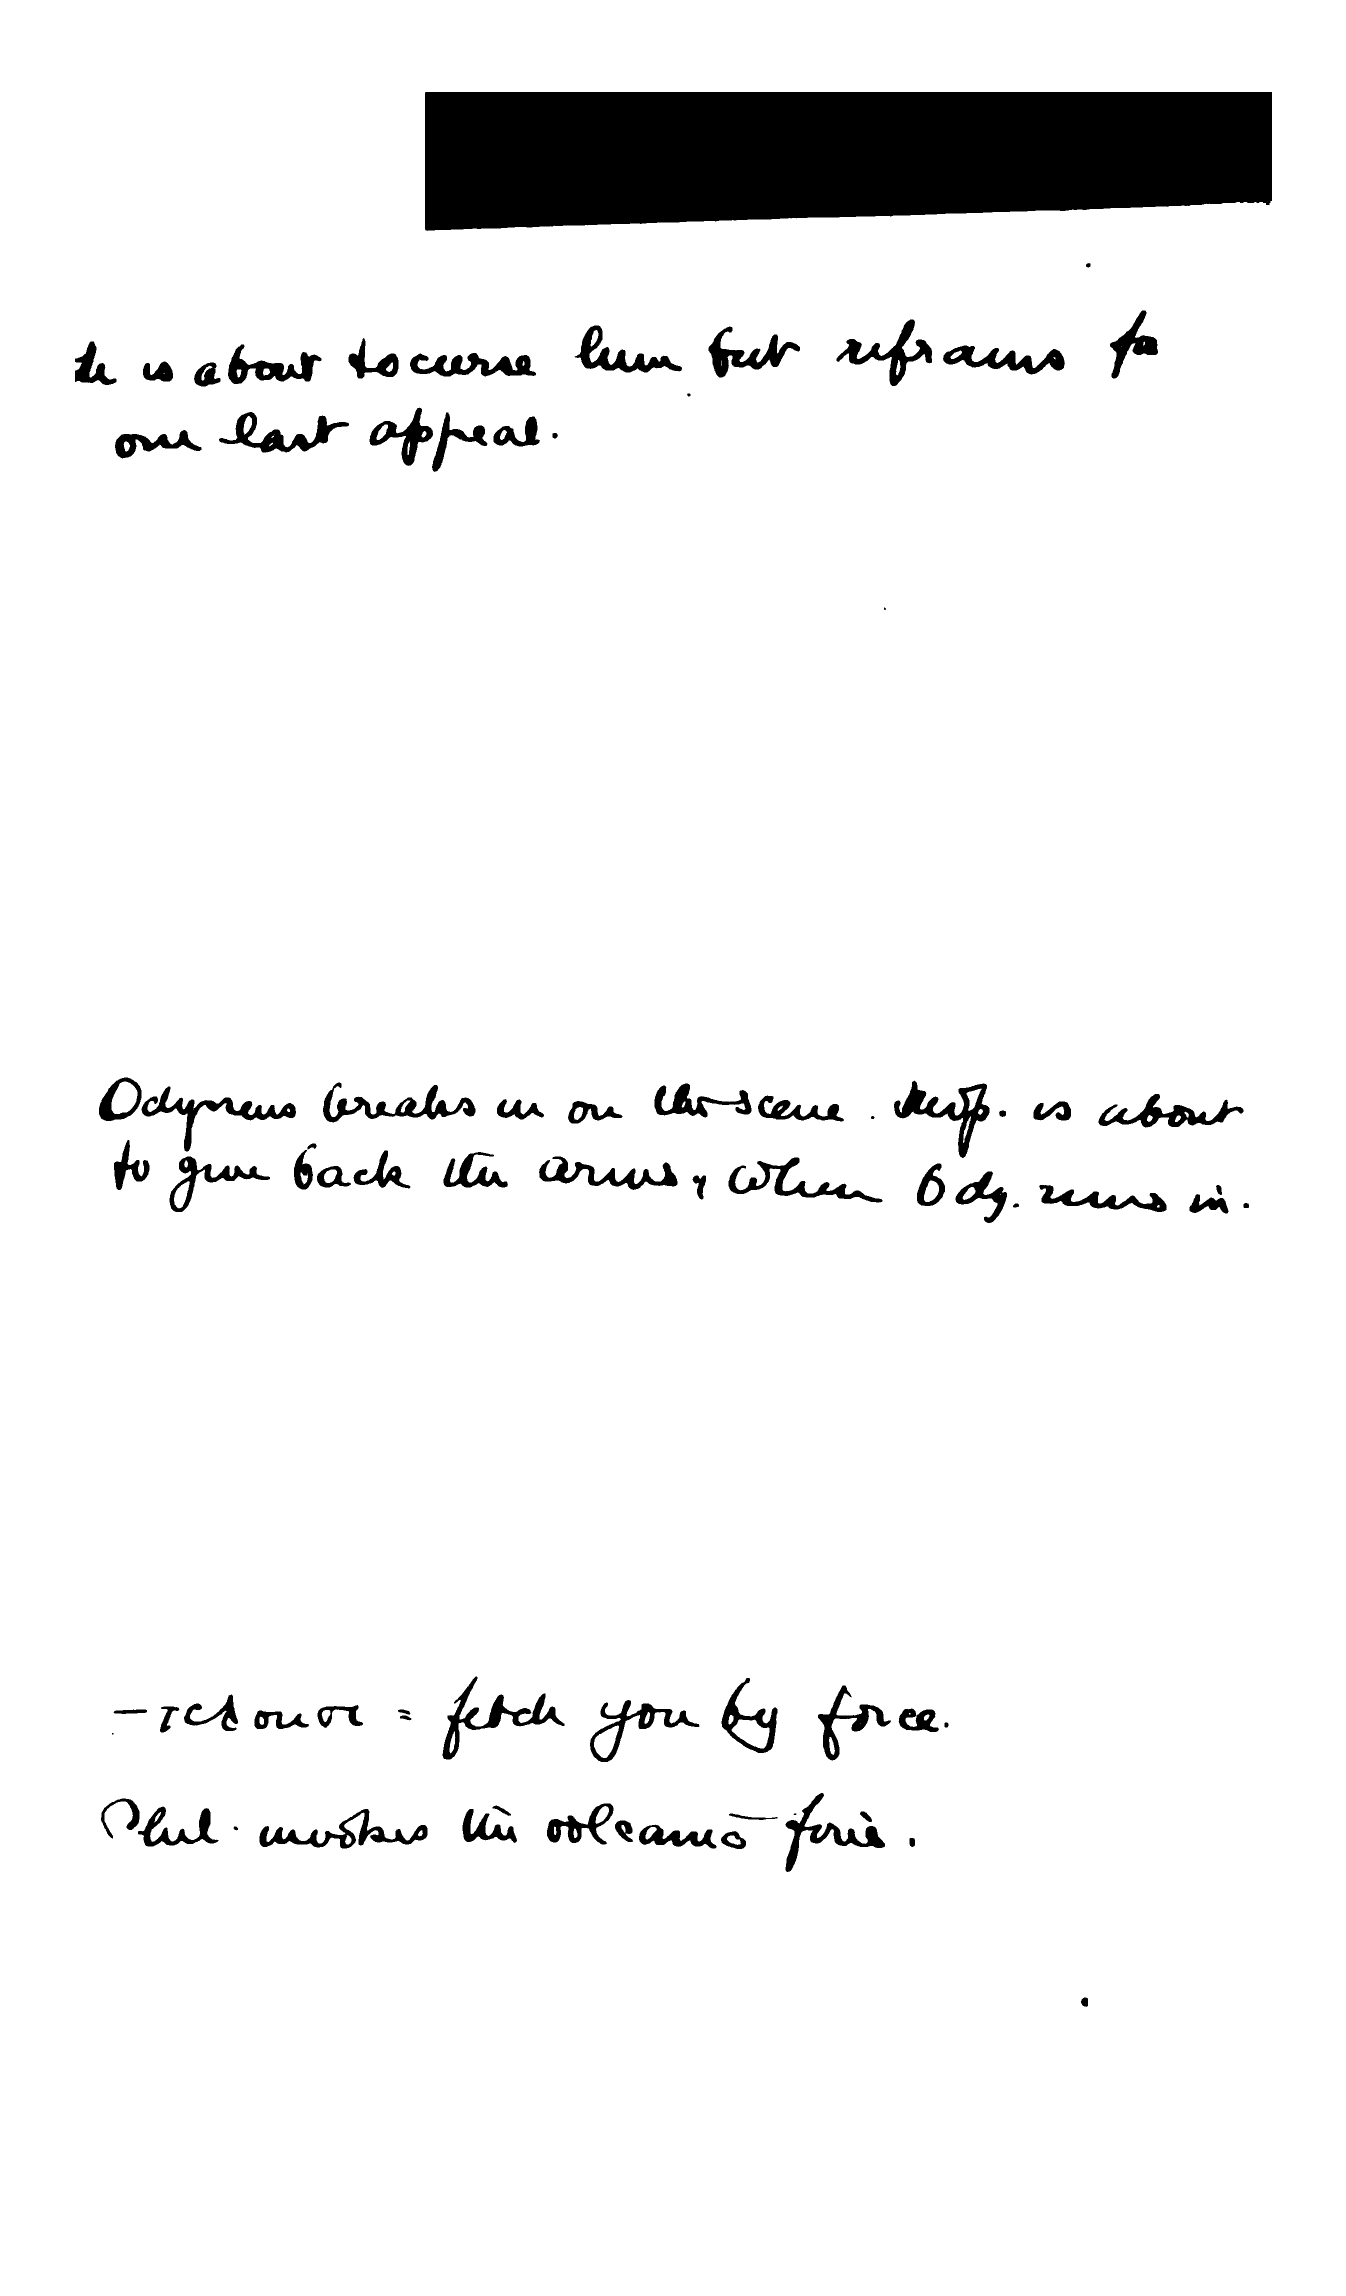 He is about to curse him but refrains for
one last appeal.
Odysseus breaks in on the scene. Neop. is about
to give back the arms, when Ody. runs in.
= fetch you by force.
Phil. invokes the volcano